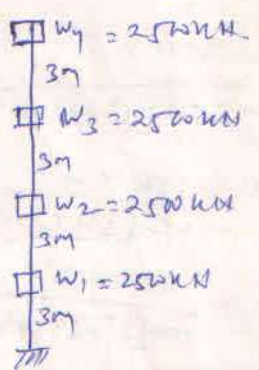 W4 = 2500 kN
3m
W3 = 2500 kN
3m
W2 = 2500 kN
3m
W1 = 2500 kN
3m